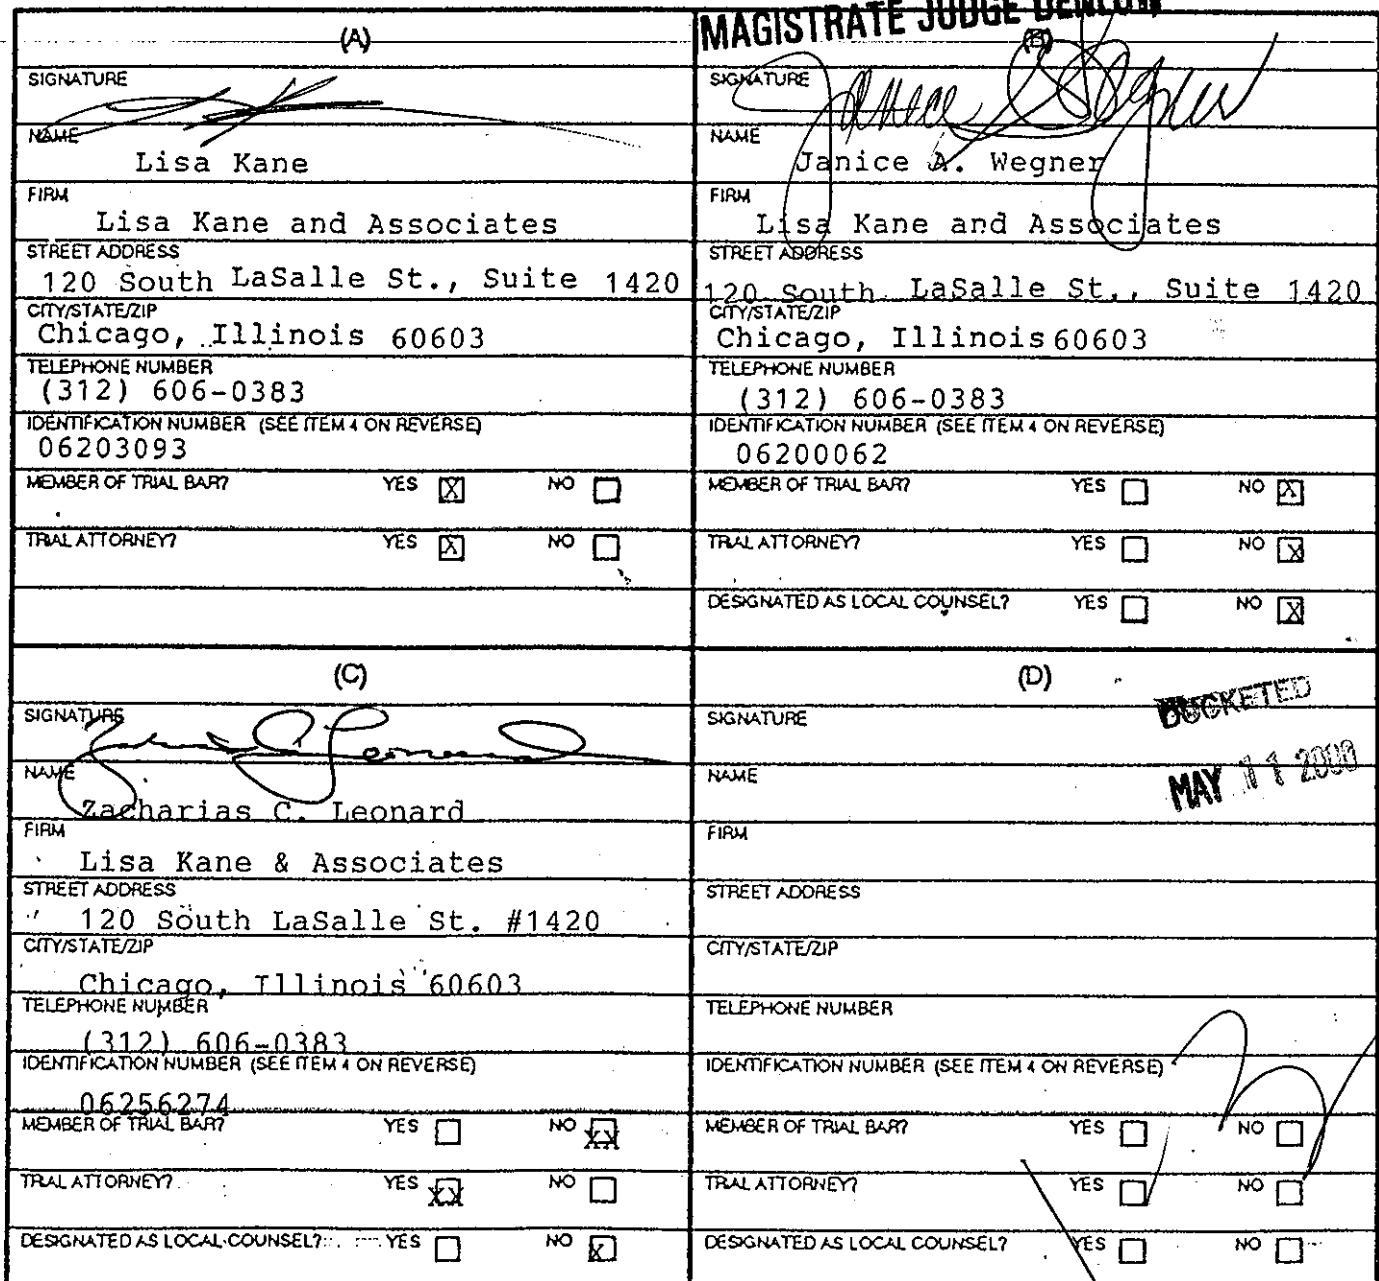 MAGISTRATE JUDGE DENLOW
(A)
SIGNATURE
NAME
Lisa Kane
FIRM
Lisa Kane and Associates
STREET ADDRESS
120 South LaSalle St., Suite 1420
CITY/STATE/ZIP
Chicago, Illinois 60603
TELEPHONE NUMBER
(312) 606-0383
IDENTIFICATION NUMBER (SEE ITEM 4 ON REVERSE)
06203093
MEMBER OF TRIAL BAR? YES X NO
TRIAL ATTORNEY? YES X NO
(B)
SIGNATURE
Janice A Wegner
NAME
Janice A. Wegner
FIRM
Lisa Kane and Associates
STREET ADDRESS
120 South LaSalle St., Suite 1420
CITY/STATE/ZIP
Chicago, Illinois 60603
TELEPHONE NUMBER
(312) 606-0383
IDENTIFICATION NUMBER (SEE ITEM 4 ON REVERSE)
06200062
MEMBER OF TRIAL BAR? YES NO X
TRIAL ATTORNEY? YES NO X
DESIGNATED AS LOCAL COUNSEL? YES NO X
(C)
SIGNATURE
Zacharias C Leonard
NAME
Zacharias C. Leonard
FIRM
Lisa Kane & Associates
STREET ADDRESS
120 South LaSalle St. #1420
CITY/STATE/ZIP
Chicago, Illinois 60603
TELEPHONE NUMBER
(312) 606-0383
IDENTIFICATION NUMBER (SEE ITEM 4 ON REVERSE)
06256274
MEMBER OF TRIAL BAR? YES NO XX
TRIAL ATTORNEY? YES XX NO
DESIGNATED AS LOCAL COUNSEL? YES NO X
(D)
DOCKETED
MAY 11 2000
SIGNATURE
NAME
FIRM
STREET ADDRESS
CITY/STATE/ZIP
TELEPHONE NUMBER
IDENTIFICATION NUMBER (SEE ITEM 4 ON REVERSE)
MEMBER OF TRIAL BAR? YES NO
TRIAL ATTORNEY? YES NO
DESIGNATED AS LOCAL COUNSEL? YES NO